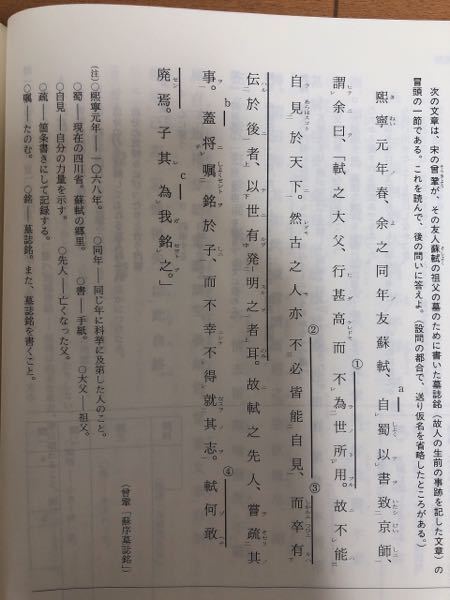 次の文章は、宋の曾鞏が、その友人蘇軾の祖父の墓のために書いた墓誌銘(故人の生前の事跡を記した文章)の
冒頭の一節である。これを読んで、後の問いに答えよ。(設問の都合で、送り仮名を省略したところがある。)
熙寧元年春、余之同年友蘇軾、a自蜀以書致京師、
謂余曰、「軾之大父、行甚高、而①不為世所用。故不能
自見於天下。然古之人亦②不必皆能自見、而③卒有
伝於後者、以世有発明之者耳。故軾之先人、嘗疏其
事。b蓋将嘱銘於子、而不幸不得就其志。④軾何敢
廃焉。子其c為我銘之。」
(曾鞏「蘇序墓誌銘」)
(注)○熙寧元年――一〇六八年。 ○同年――同じ年に科挙に及第した人のこと。
○蜀――現在の四川省。蘇軾の郷里。 ○書――手紙。 ○大父――祖父。
○自見――自分の力量を示す。 ○先人――亡くなった父。
○疏――箇条書きにして記録する。
○嘱――たのむ。 ○銘――墓誌銘。また、墓誌銘を書くこと。